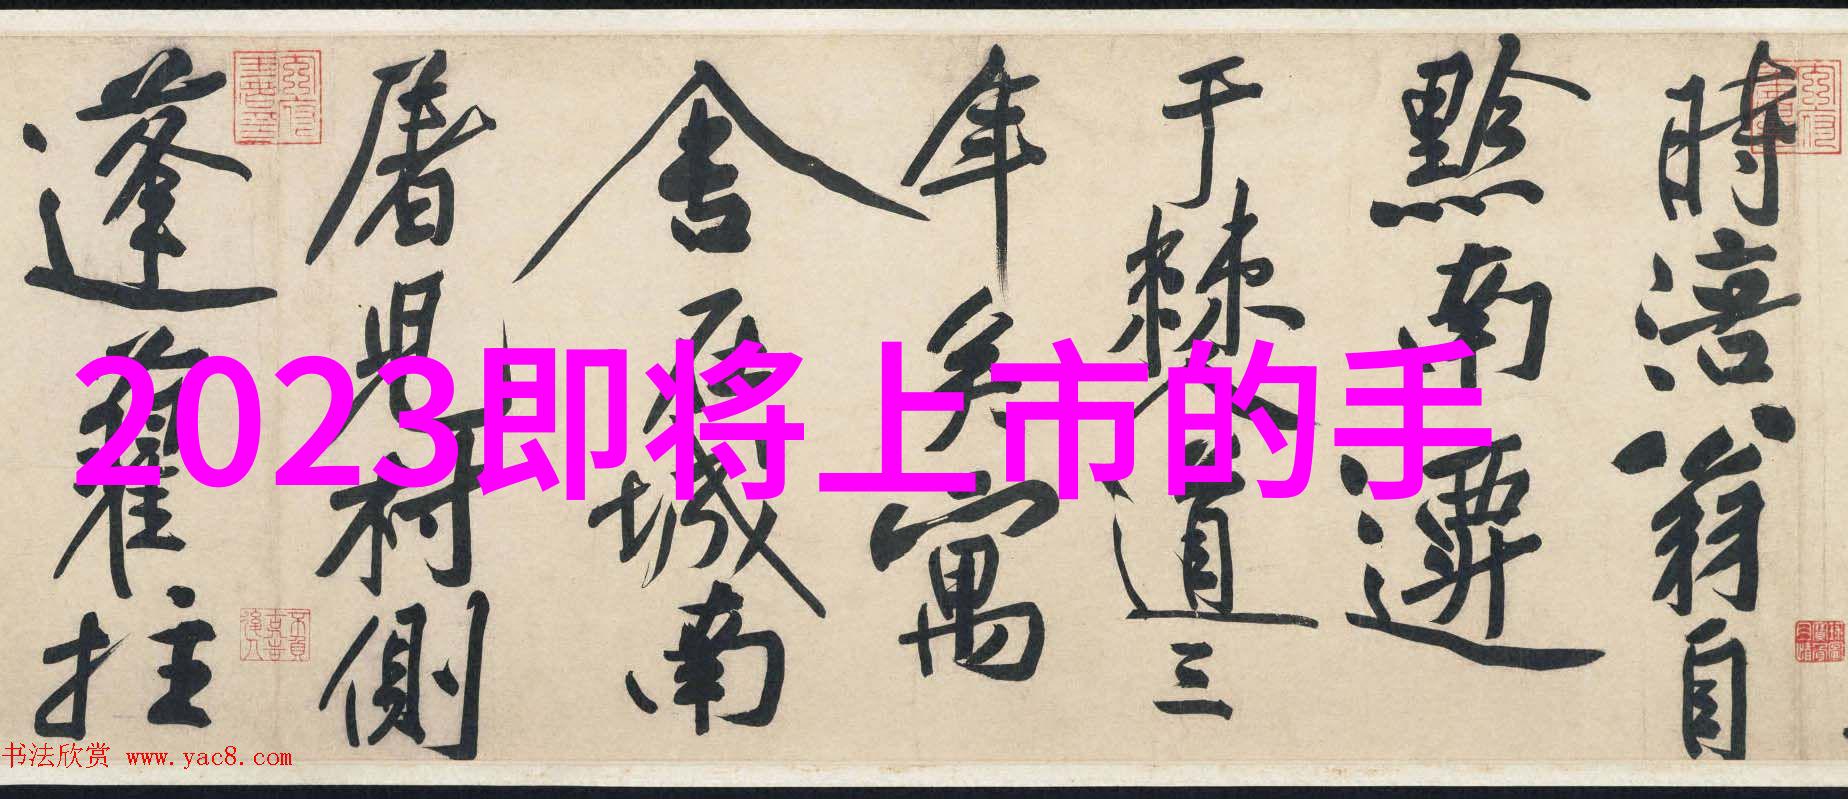 時涪翁自
黔南遷
于棘道三
年矣寓
舍居城南
屠兒村側
蓬藋拄
2023即将上市的手
书法欣赏 www.yac8.com